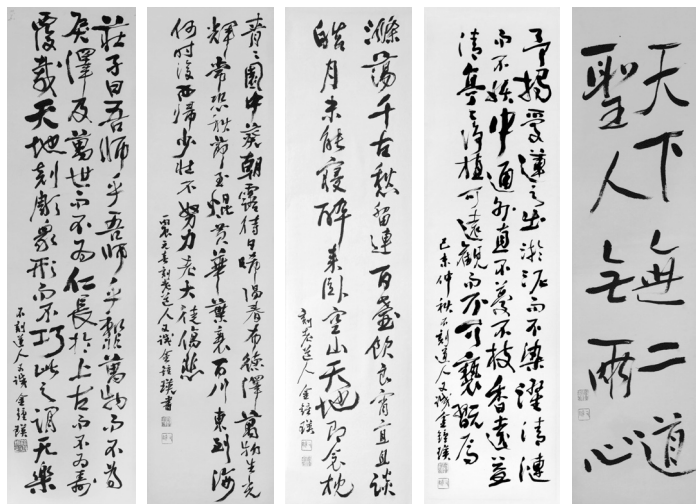 天下無二道
聖人无兩心
予獨愛蓮之出淤泥而不染濯清漣
而不妖中通外直不蔓不枝香遠益
清亭亭淨植可遠觀而不可褻翫焉
己未仲秋不刻道人又誠金鐘瑛
滌蕩千古愁留連百壺飲良宵宜且談
皓月未能寢醉來臥空山天地即衾枕
刻老道人金鐘瑛
青〻園中葵朝露待日晞陽春布德澤萬物生光
輝常恐秋節至焜黃華葉衰百川東到海
何時復西歸少壯不努力老大徒傷悲
刻老道人又誠金鐘瑛書
莊子曰吾師乎吾師乎䪠萬物而不為
戾澤及萬世而不為仁長於上古而不為壽
覆載天地刻彫衆形而不巧此之謂天樂
不刻道人又誠金鐘瑛